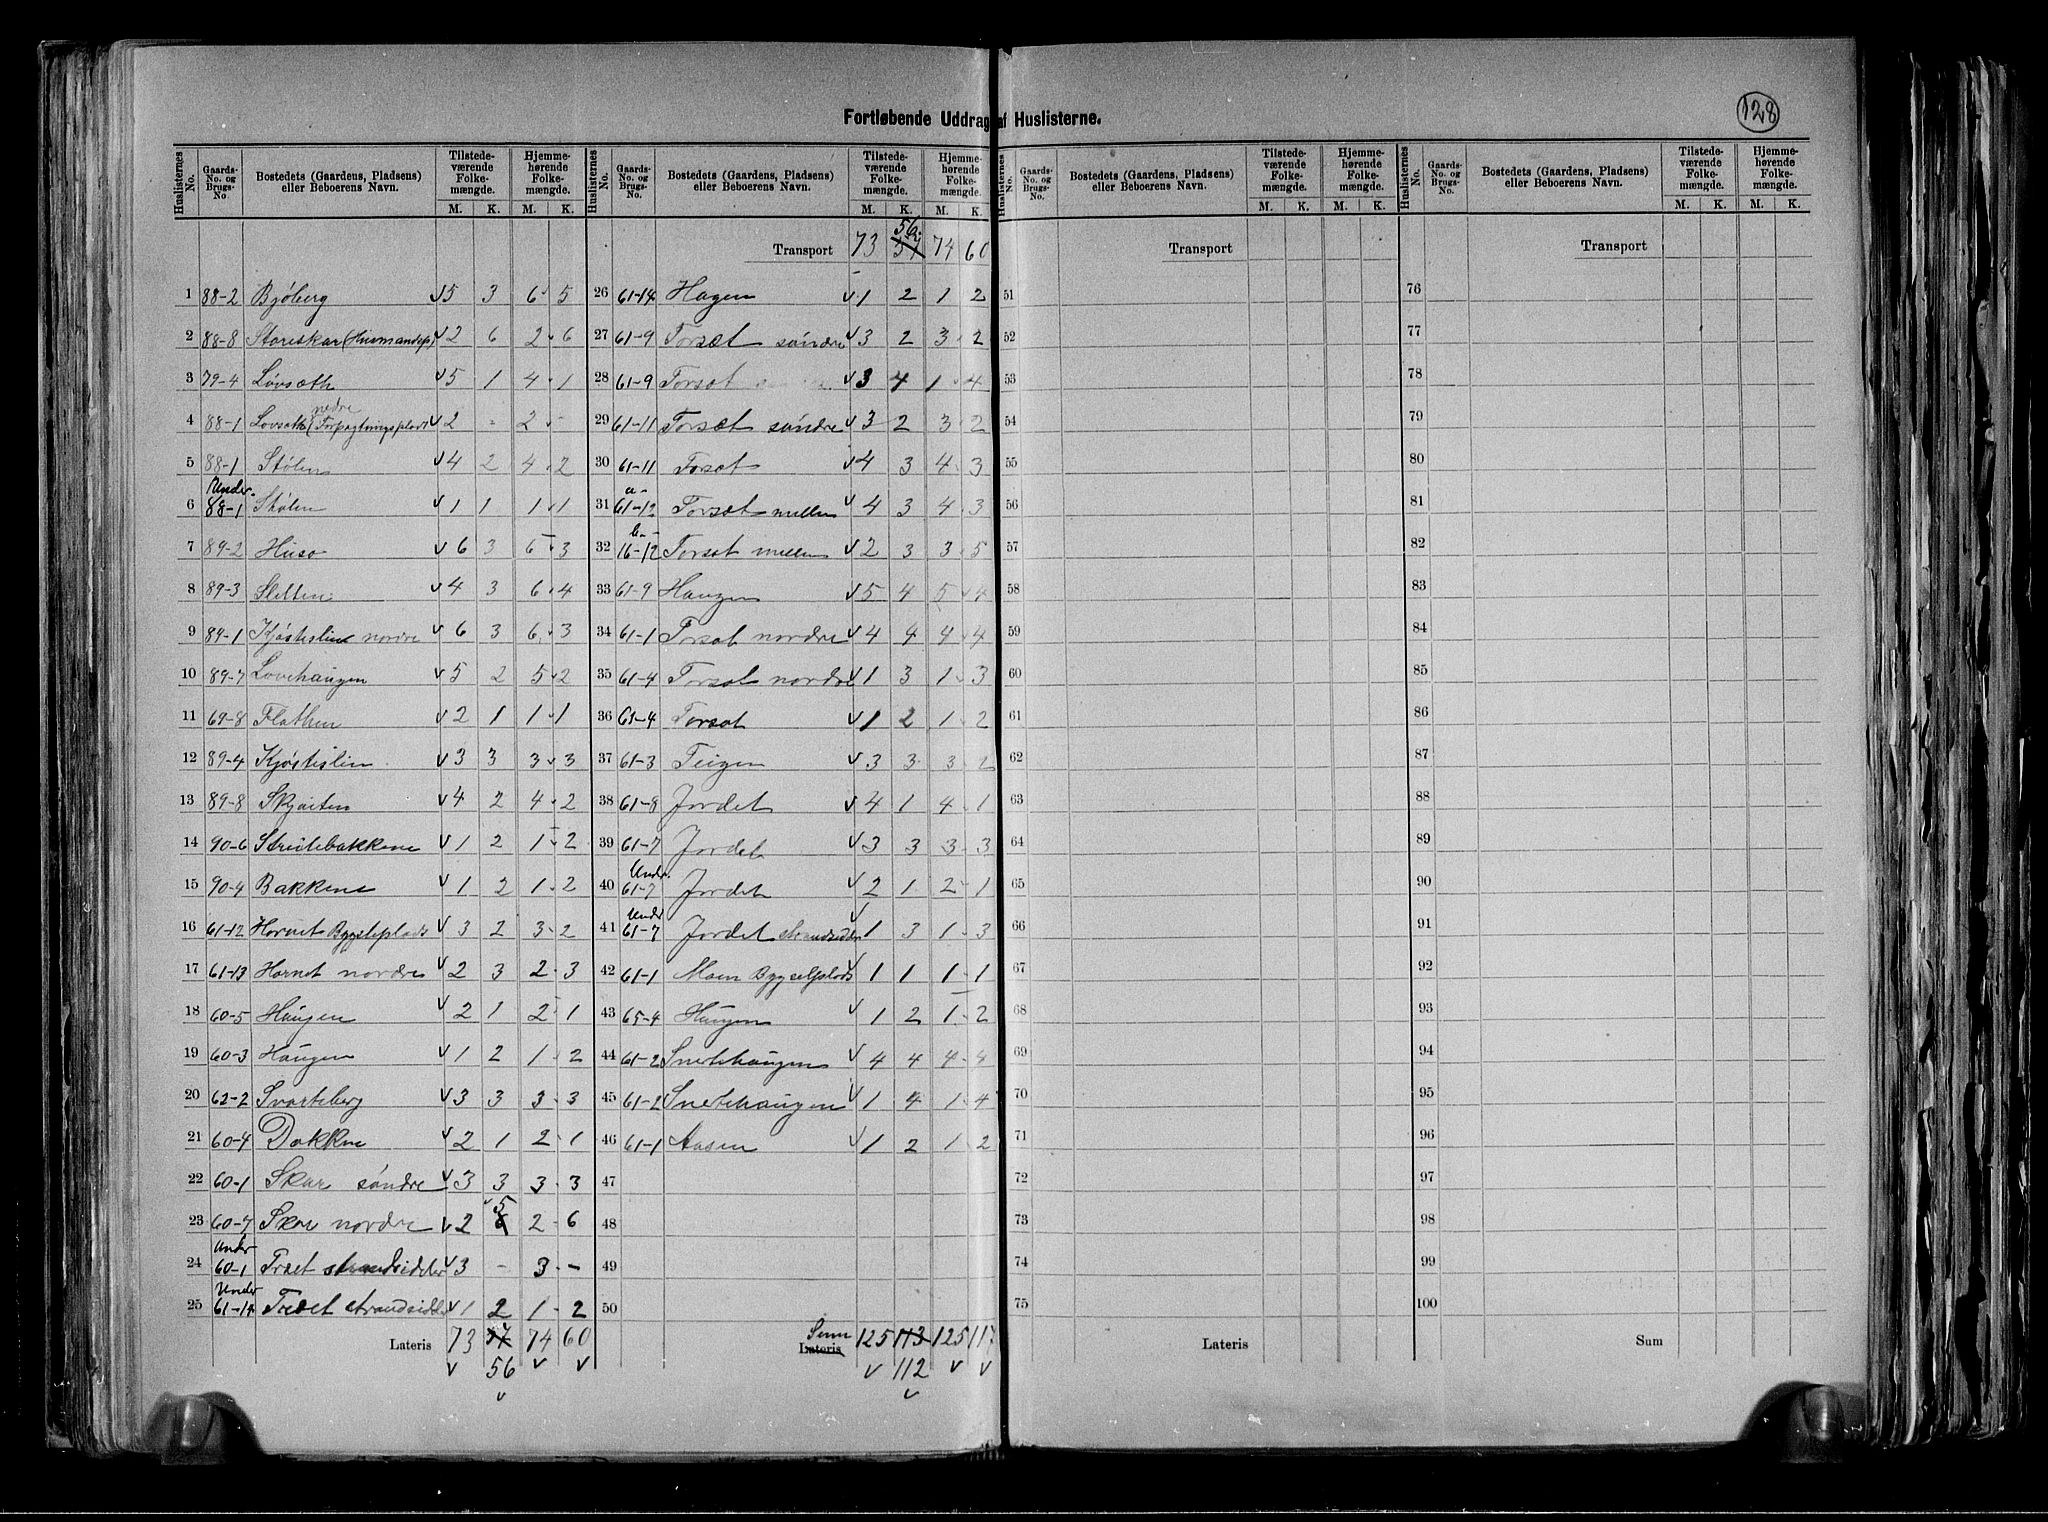 128
Fortløbende Uddrag af Huslisterne.
Huslisternes No. Gaards-No. og Brugs-No Bostedets (Gaardens, Pladsens) eller Beboerens Navn. Tilstedeværende Folkemængde. M. K. Hjemmehørende Folkemængde. M. K.
1 88-2 Bjøberg v 5 3 6 5
2 88-8 Storeskar (Husmandspl) v 2 6 2 6
3 79-4 Løvsæth v 5 1 4 1
4 88-1 Lovsæth nedre (Forpagtningsplads v 2 - 2 -
5 88-1 Stølen v 4 2 4 2
6 Under 88-1 Stølen v 1 1 1 1
7 89-2 Huso v 6 3 6 3
8 89-3 Sletten v 4 3 6 4
9 89-1 Kjøstislien nordre v 6 3 6 3
10 89-7 Lovehaugen v 5 2 5 2
11 69-8 Flathen v 2 1 1 1
12 89-4 Kjøstislien v 3 3 3 3
13 89-8 Skjaiten v 4 2 4 2
14 90-6 Streitebakkene v 1 2 1 2
15 90-4 Bakkene v 1 2 1 2
16 61-12 Hornet Bygselplads v 3 2 3 2
17 61-13 Hornet nordre v 2 3 2 3
18 60-5 Haugen v 2 1 2 1
19 60-3 Haugen v 1 2 1 2
20 62-2 Svarteberg v 3 3 3 3
21 60-4 Dokken v 2 1 2 1
22 60-1 Skar søndre v 3 3 3 3
23 60-7 Skar nordre v 2 6 5 2 6
24 Under 60-1 Træet strandsidder v 3 - 3 -
25 Under 61-14 Træet strandsidder v 1 2 1 2
Lateris 73 57 74 60
v 56 v v
v
Huslisternes No. Gaards-No. og Brugs-No. Bostedets (Gaardens, Pladsens) eller Beboerens Navn. Tilstedeværende Folkemængde. M. K. Hjemmehørende Folkemængde. M. K.
Transport 73 57 56 74 60
26 61-14 Hagen v 1 2 1 2
27 61-9 Torsæt søndre v 3 2 3 2
28 61-9 Torsæt v 3 4 1 4
29 61-11 Torsæt søndre v 3 2 3 2
30 61-11 Torsæt v 4 3 4 3
31 a- 61-12 Torsæt mellem v 4 3 4 3
32 b- 16-12 Torsæt mellem v 2 3 3 5
33 61-9 Haugen v 5 4 5 4
34 61-1 Torsæt nordre v 4 4 4 4
35 61-4 Torsæt nordre v 1 3 1 3
36 61-4 Torsæt v 1 2 1 2
37 61-3 Teigen v 3 3 3 2
38 61-8 Jordet v 4 1 4 1
39 61-7 Jordet v 3 3 3 3
40 Under 61-7 Jordet v 2 1 2 1
41 Under 61-7 Jordet strandsidder v 1 3 1 3
42 61-1 Moen Bygselplads v 1 1 1 1
43 65-4 Haugen v 1 2 1 2
44 61-2 Snertehaugen v 4 4 4 4
45 61-2 Snertehaugen v 1 4 1 4
46 61-1 Aasen v 1 2 1 2
47
48
49
50
Sum Lateris 125 113 125 117
v 112 v v
v
Huslisternes No. Gaards-No. og Brugs-No. Bostedets (Gaardens, Pladsens) eller Beboerens Navn. Tilstedeværende Folkemængde. M. K. Hjemmehørende Folkemængde. M. K.
Transport
51
52
53
54
55
56
57
58
59
60
61
62
63
64
65
66
67
68
69
70
71
72
73
74
75
Lateris
Huslisternes No. Gaards-No. og Brugs-No. Bostedets (Gaardens, Pladsens) eller Beboerens Navn. Tilstedeværende Folkemængde. M. K. Hjemmehørende Folkemængde. M. K.
Transport
76
77
78
79
80
81
82
83
84
85
86
87
88
89
90
91
92
93
94
95
96
97
98
99
100
Sum